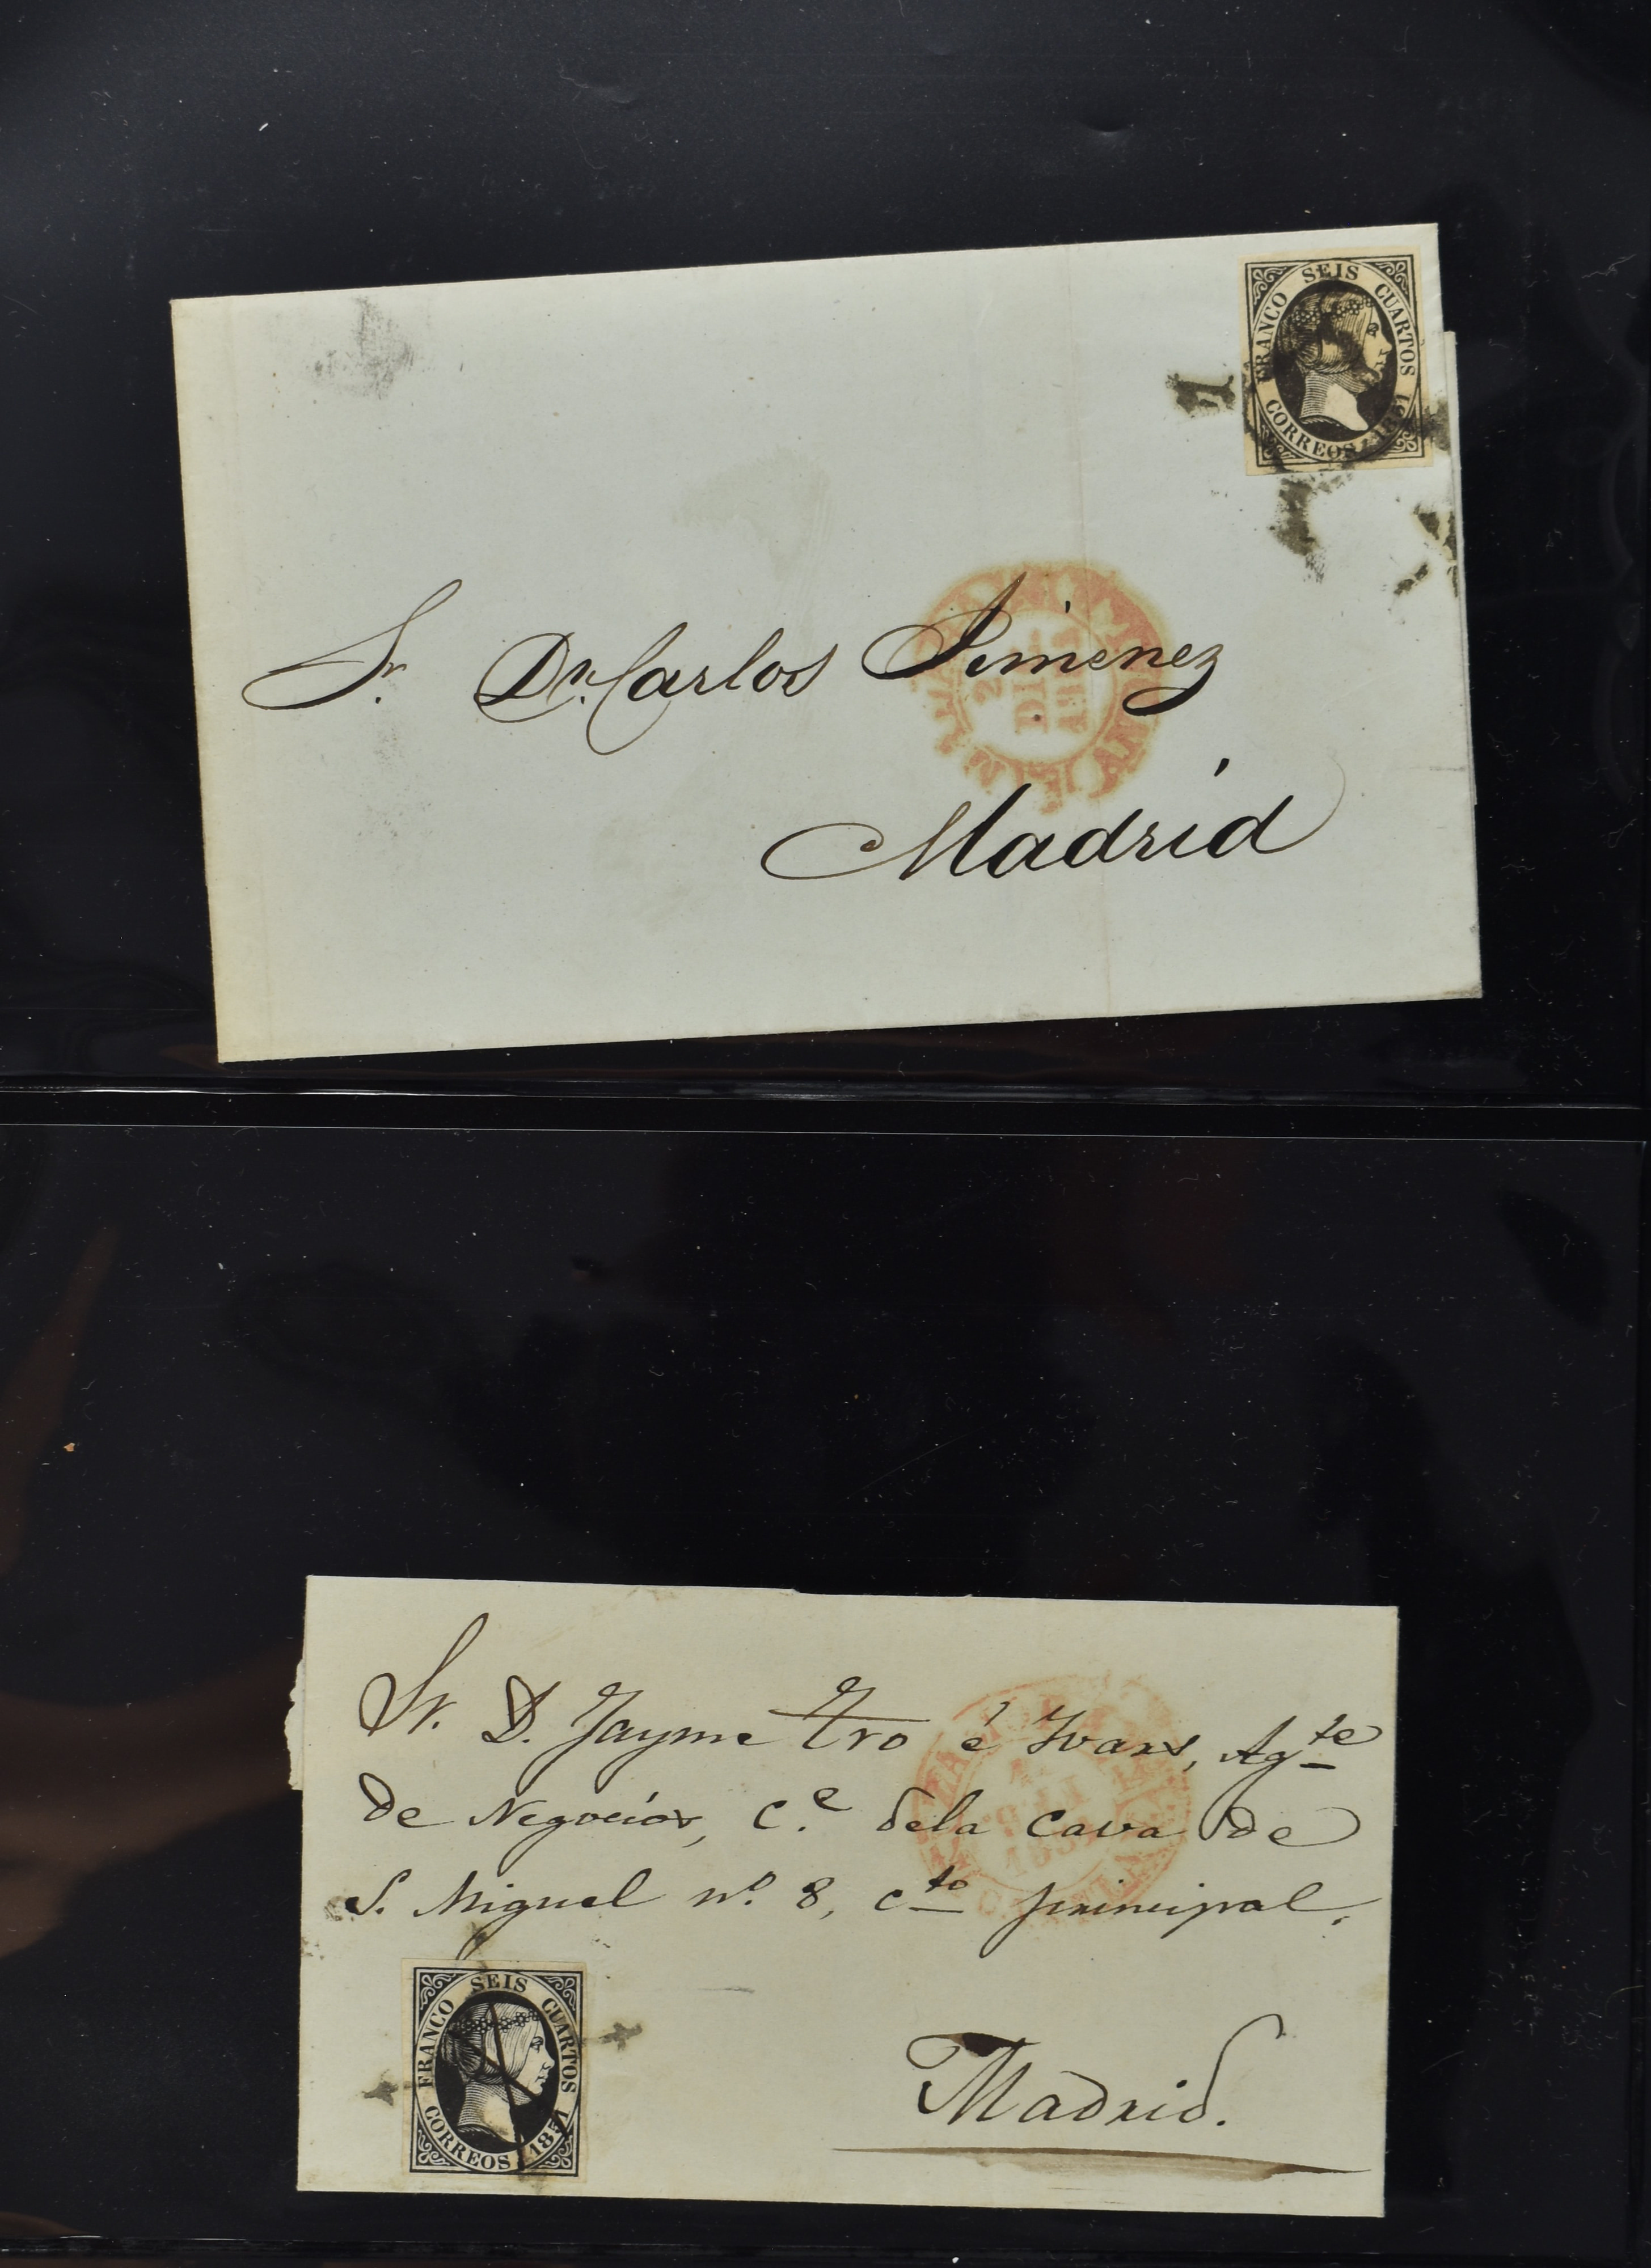 FRANCO SEIS CUARTOS
CORREOS 1851
Sr. Dn. Carlos Jimenez
Madrid
Sr. D. Jayme Tro é Ivars, Agte
de Negocios, Ce. dela Cava de
S. Miguel no. 8, cto principal.
FRANCO SEIS CUARTOS
CORREOS 1851
Madrid.